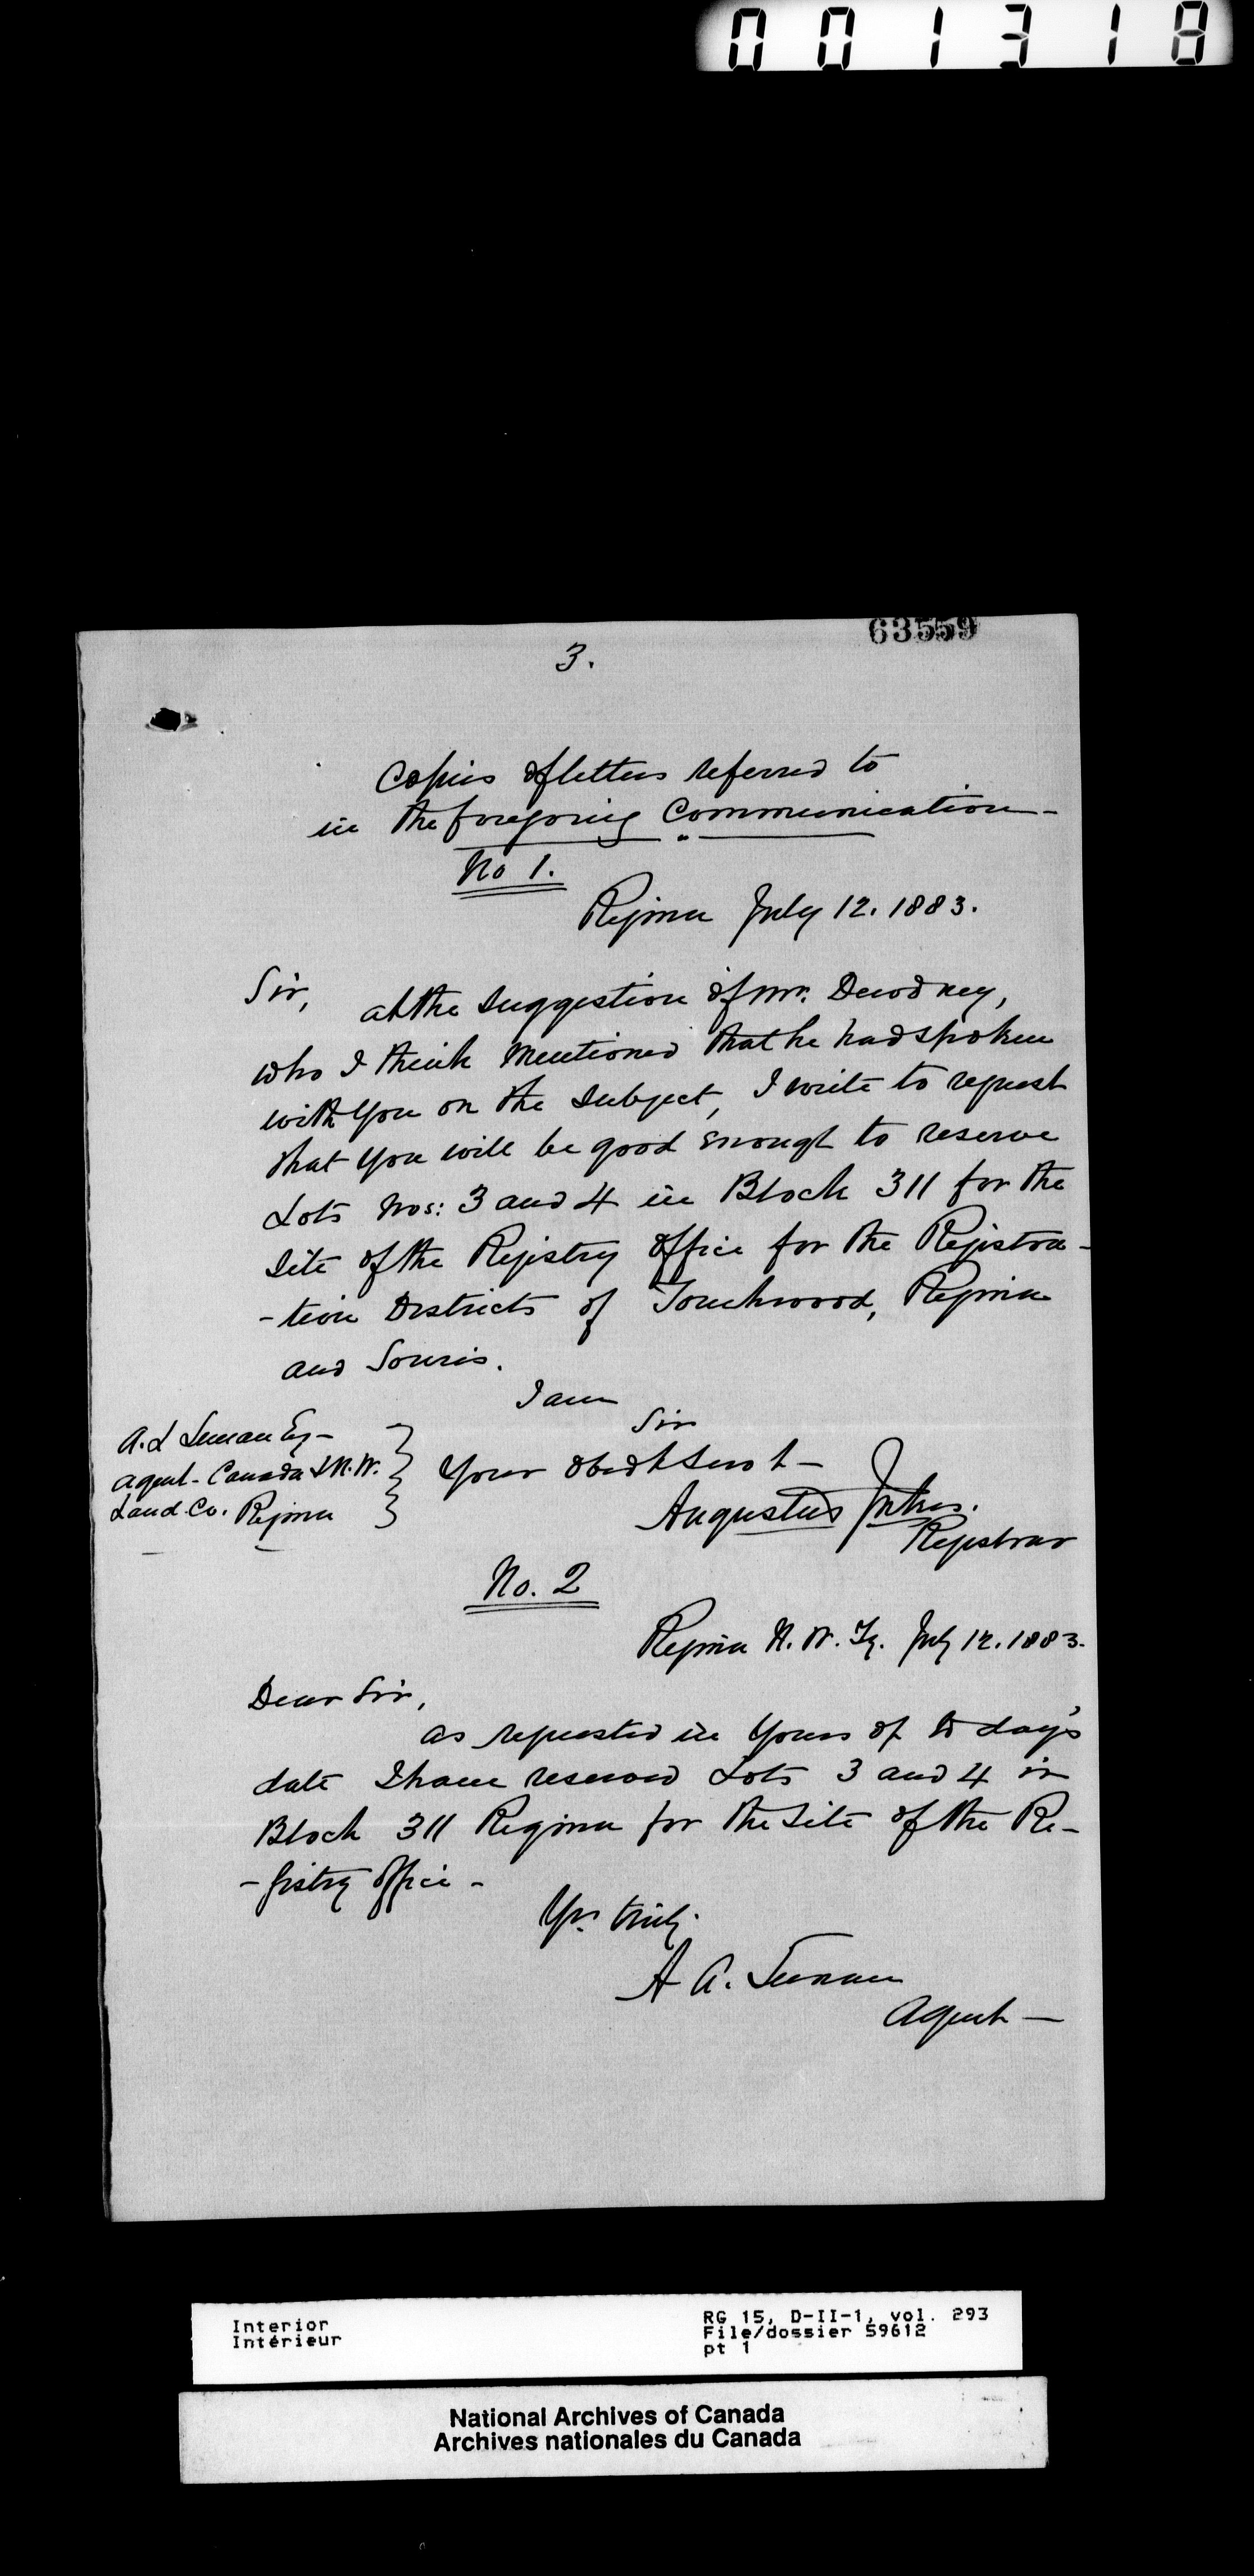 001318
63559
3.
Copies of letters referred to
in the foregoing Communication -
No 1.
Regina July 12. 1883.
Sir,
at the suggestion of Mr. Dewdney,
who I think mentioned that he had spoken
with you on the subject, I write to request
that you will be good enough to reserve
Lots Nos: 3 and 4 in Block 311 for the
site of the Registry office for the Registra-
-tion Districts of Touchwood, Regina
and Souris.
I am
Sir
Your obedt Servt -
Augustus Jukes.
Registrar
A. Esq -
Agent - Canada & N.W.
Land Co. Regina
No. 2
Regina N. W. Ty. July 12. 1883.
Dear Sir,
as requested in yours of to day's
date I have reserved Lots 3 and 4 in
Block 311 Regina for the site of the Re-
-gistry office -
Yrs truly.
A A.
Agent -
Interior
Intérieur
RG 15, D-II-1, vol. 293
File/dossier 59612
pt 1
National Archives of Canada
Archives nationales du Canada